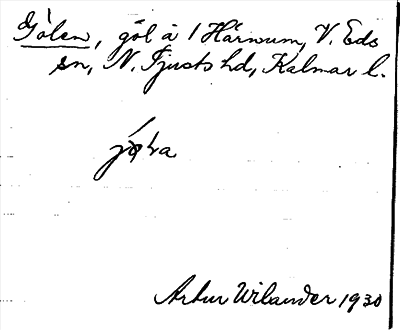 Gölen, göl å 1 Härnum, V. Eds
sn, N. Tjusts hd, Kalmar l.
Artur Wilander 1930